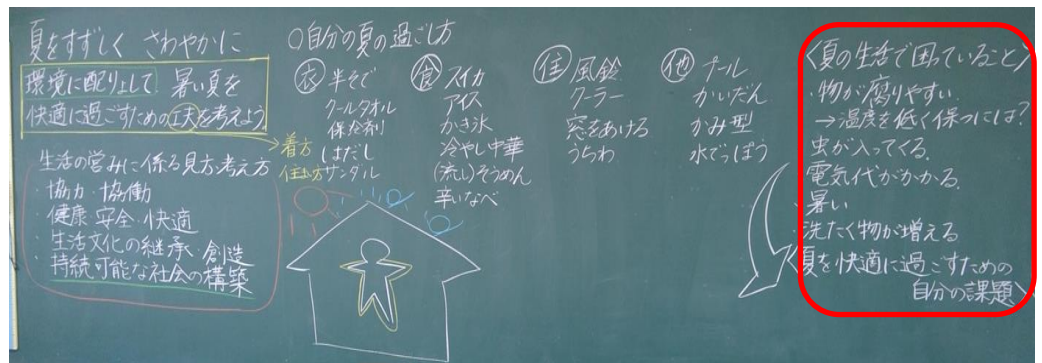 夏をすずしく さわやかに
環境に配りょして 暑い夏を
快適に過ごすための工夫を考えよう
→着方
住まい方
生活の営みに係る見方考え方
・協力・協働
・健康・安全・快適
・生活文化の継承・創造
・持続可能な社会の構築
○自分の夏の過ごし方
衣 半そで
クールタオル
保冷剤
はだし
サンダル
食 スイカ
アイス
かき氷
冷やし中華
(流し)そうめん
辛いなべ
住 風鈴
クーラー
窓をあける
うちわ
他 プール
かいだん
かみ型
水でっぽう
〈夏の生活で困っていること〉
・物が腐りやすい
→温度を低く保つには?
・虫が入ってくる。
・電気代がかかる。
・暑い
・洗たく物が増える
〈夏を快適に過ごすための
自分の課題〉